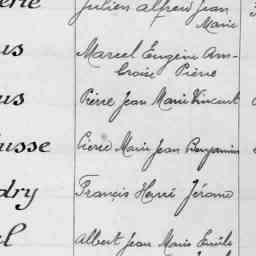 Julien Alfred Jean
Marie
us
Marcel Eugène Am-
broise Pierre
us
Pierre Jean Marie Vincent
usse
Pierre Marie Jean Benjamin
dry
Francis Henri Jérome
el
Albert Jean Marie Emile